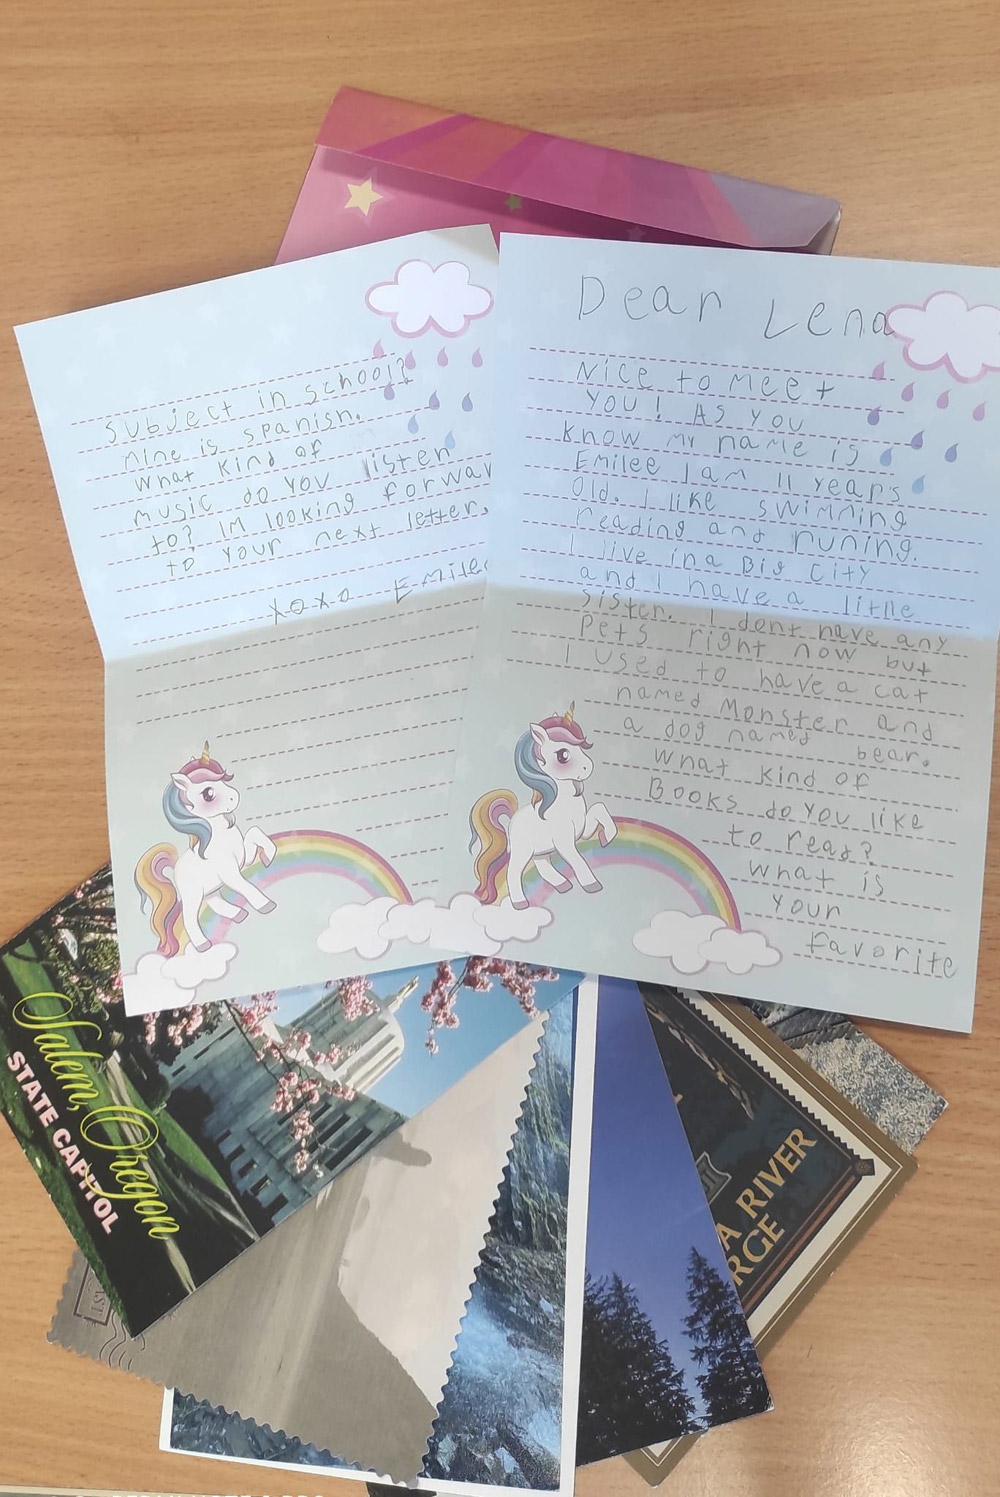 Dear Lena
Nice to meet
you! As you
know my name is
Emilee I am 11 years
old. I like swimming
reading and runing.
I live in a Big City
and I have a little
sister. I dont have any
Pets right now but
I used to have a cat
named Monster and
a dog named bear.
What kind of
Books do you like
to read?
What is
your
favorite
subject in school?
Mine is spanish.
What kind of
music do you listen
to? Im looking forwar
to your next letter.
xoxo Emilee
Salem, Oregon
STATE CAPITOL
A RIVER
RGE